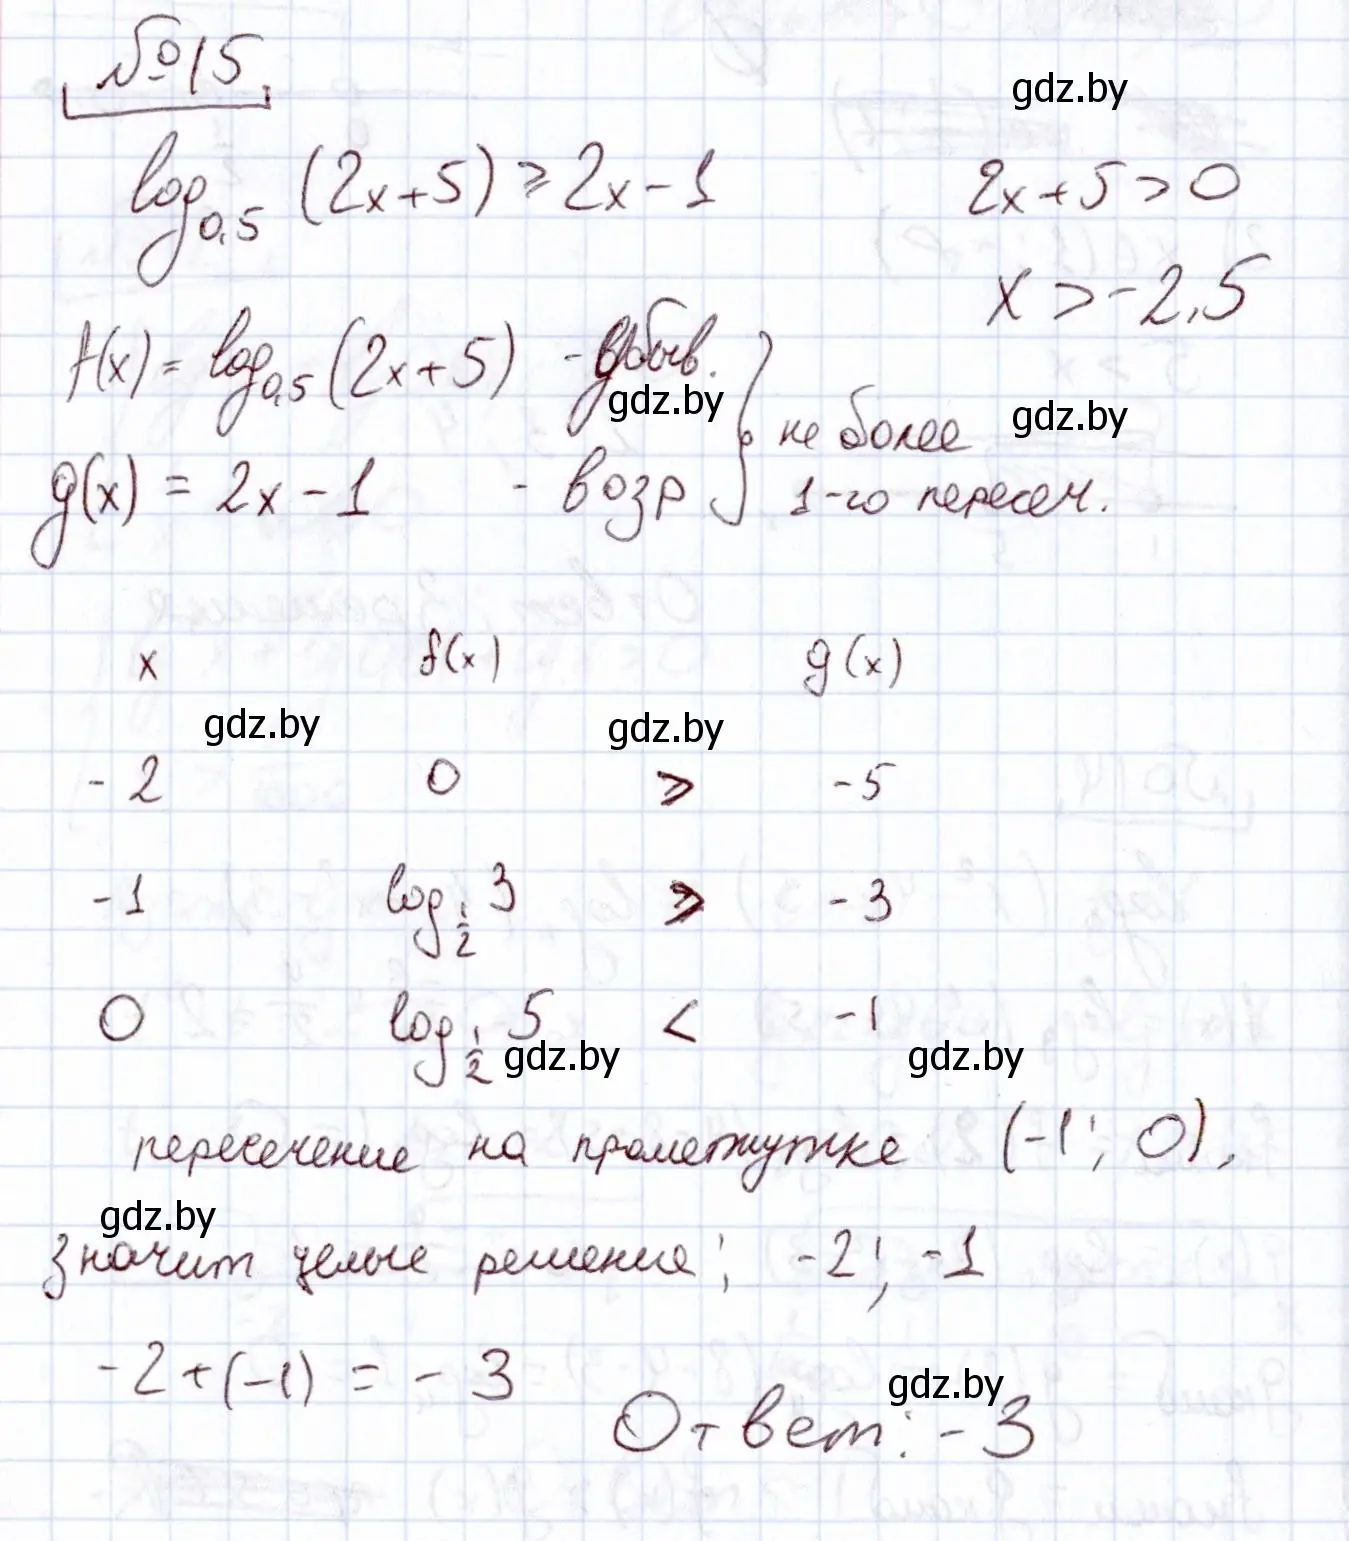 №15
gdz.by
log₀,₅ (2x+5) ≥ 2x-1 2x+5>0
x>-2,5
f(x) = log₀,₅ (2x+5) - убыв.
gdz.by gdz.by
не более
g(x) = 2x-1 - возр
1-го пересеч.
x f(x) g(x)
gdz.by gdz.by
-2 0 > -5
-1 log_{1/2} 3 > -3
0 log_{1/2} 5 < -1
gdz.by gdz.by
пересечение на промежутке (-1; 0),
gdz.by
значит целые решение: -2; -1
-2+(-1) = -3
gdz.by
Ответ: -3